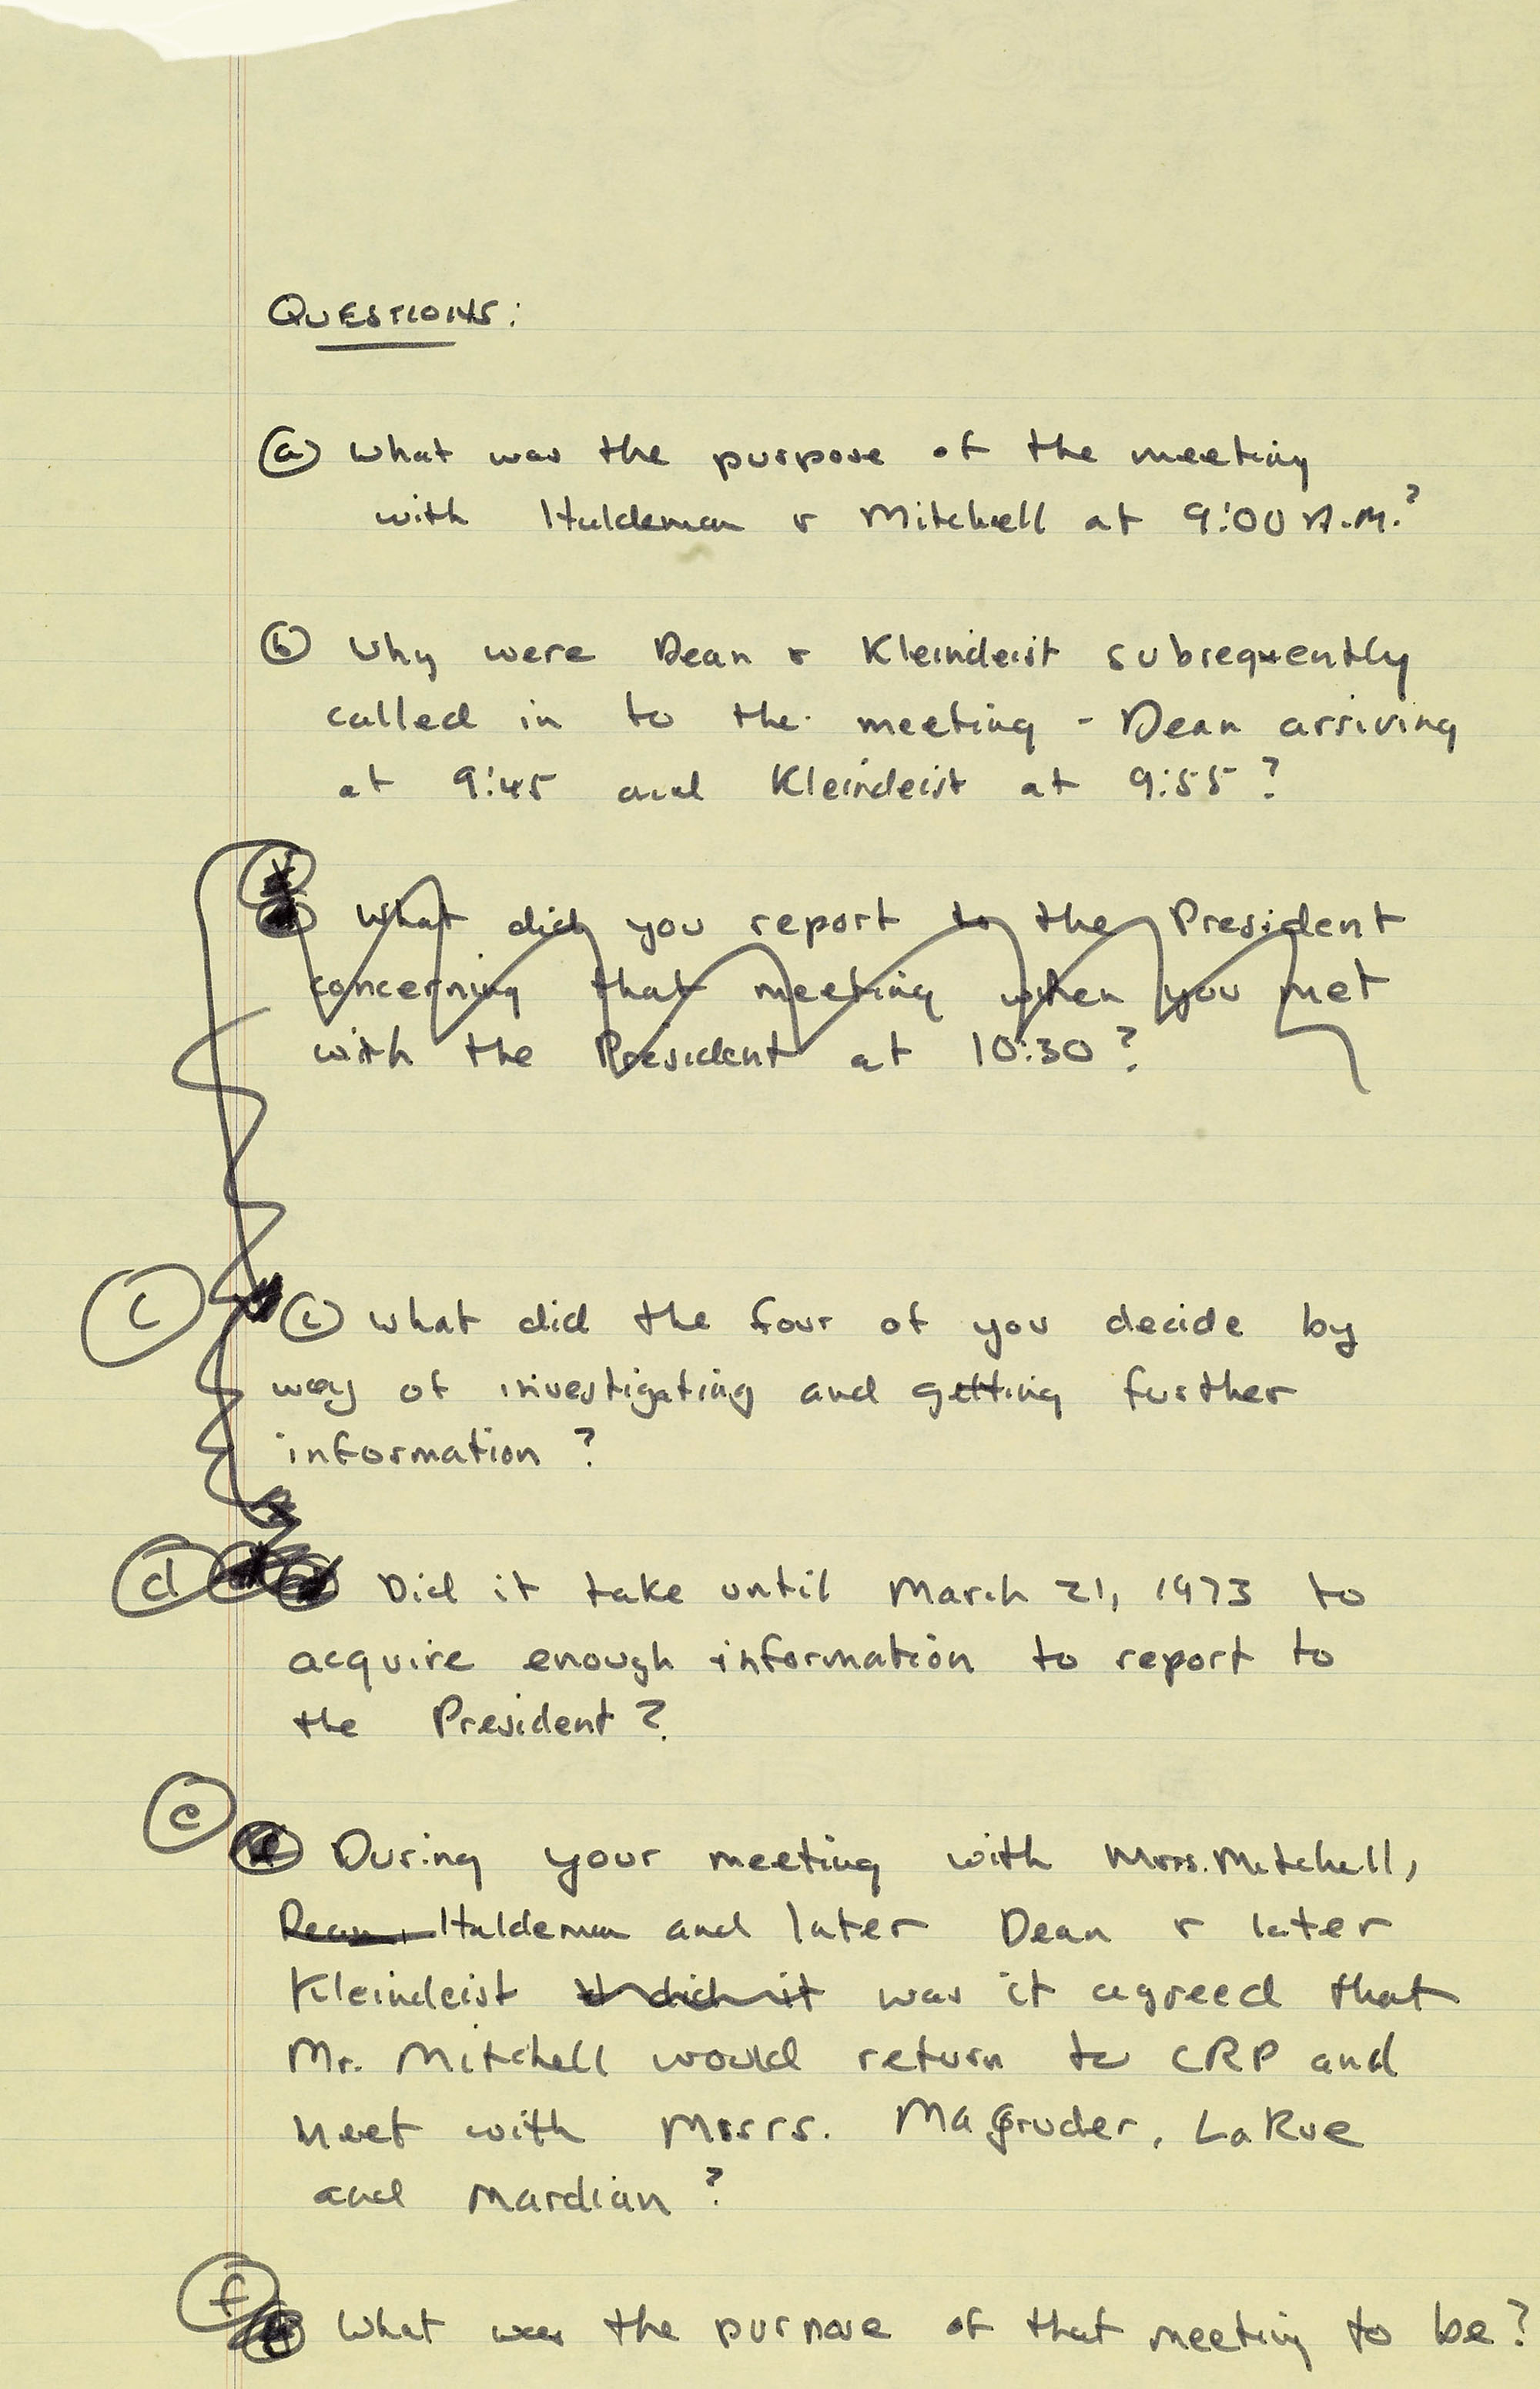 QUESTIONS:
(a) What was the purpose of the meeting
with Haldeman & Mitchell at 9:00 A.M.?
(b) Why were Dean & Kleindeist subsequently
called in to the meeting - Dean arriving
at 9:45 and Kleindeist at 9:55?
What did you report to the President
concerning that meeting when you met
with the President at 10:30?
(c) (c) What did the four of you decide by
way of investigating and getting further
information?
(d) Did it take until March 21, 1973 to
acquire enough information to report to
the President?
(e) During your meeting with Mrrs. Mitchell,
Dean, Haldeman and later Dean & later
Kleindeist did it was it agreed that
Mr. Mitchell would return to CRP and
meet with Msrrs. Magruder, LaRue
and Mardian?
(f) What was the purpose of that meeting to be?